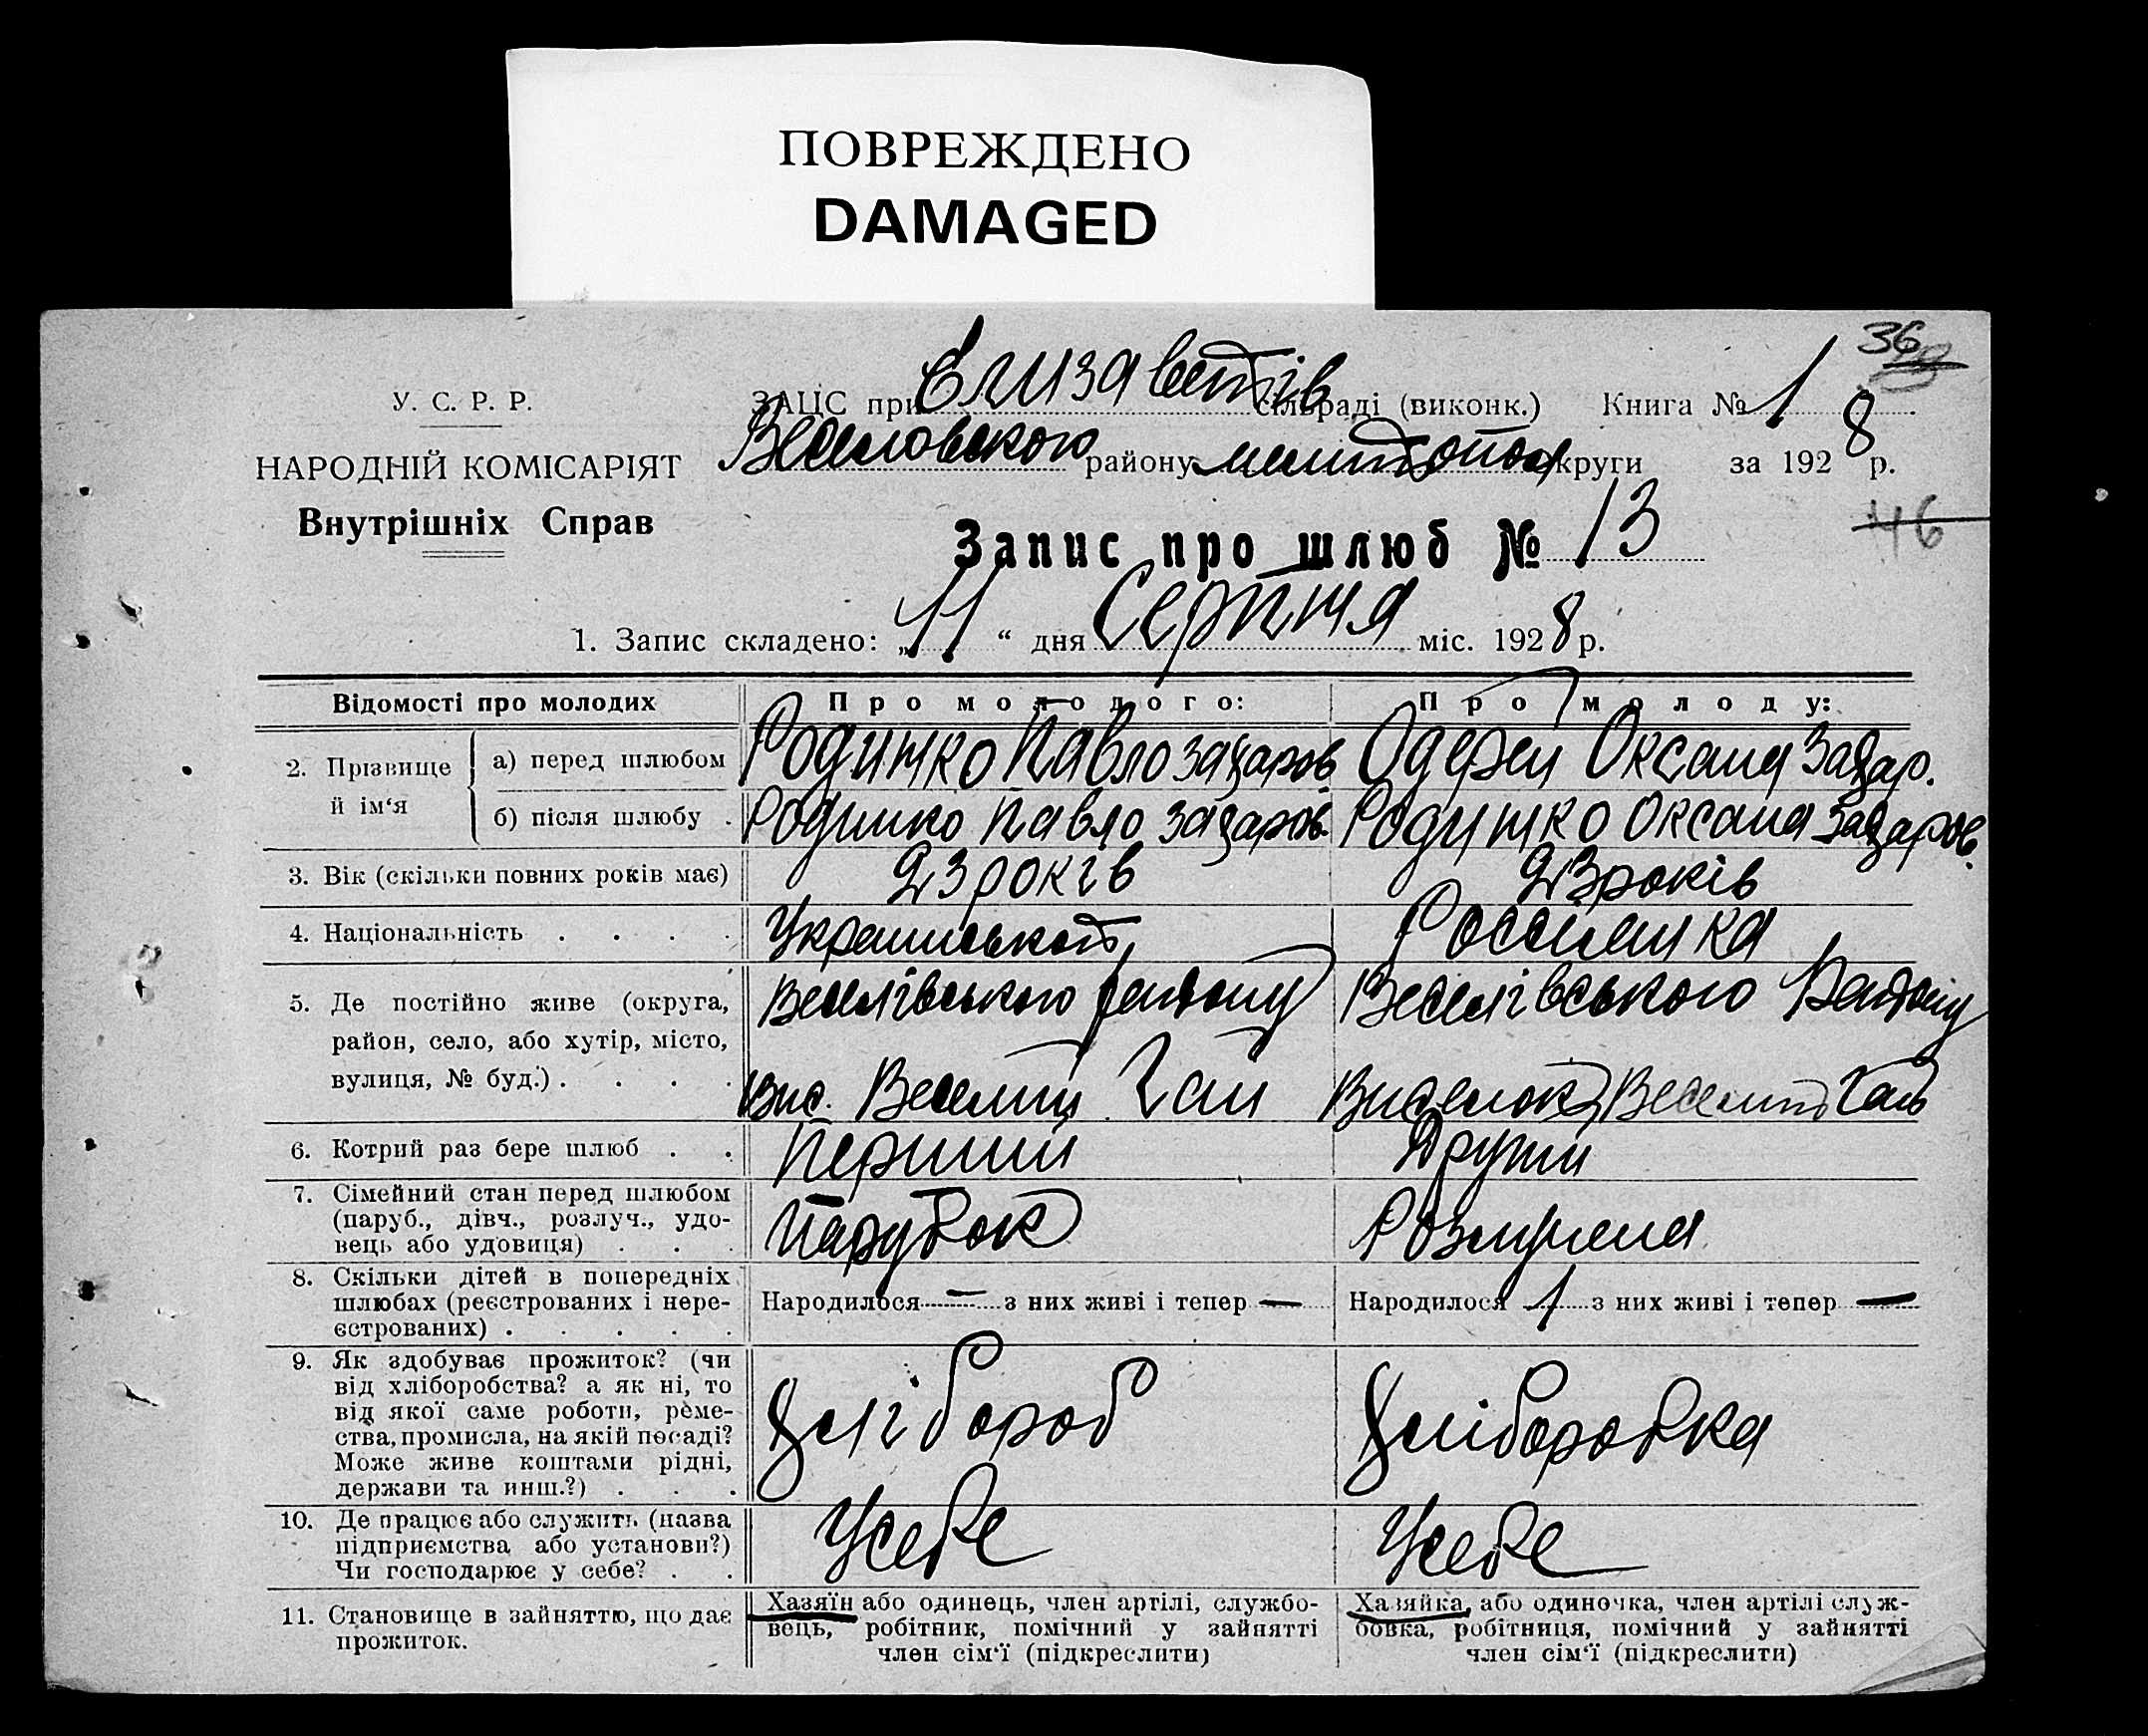 ПОВРЕЖДЕНО
DAMAGED
36
У. С. Р. Р.
ЗАЦС при Єлизаветів сільраді (виконк.) Книга № 1
НАРОДНІЙ КОМІСАРІЯТ
Внутрішніх Справ
Веселовського району Мелітопол округи за 1928 р.
46
Запис про шлюб № 13
1. Запис складено: „11“ дня Серпня міс. 1928 р.
Відомості про молодих
Про молодого:
Про молоду:
2. Прізвище й ім‘я
а) перед шлюбом
Родинко Павло Захаров
Оксана Захар.
б) після шлюбу .
Родинко Павло Захаров.
Родинко Оксана Захаров.
3. Вік (скільки повних років має)
23 років
23 років
4. Національність . . . .
Россиянка
5. Де постійно живе (округа,
район, село, або хутір, місто,
вулиця, № буд.) . . . .
Веселівського району
Вис. Веселий Гай
Веселівського Району
Виселок Веселий Гай
6. Котрий раз бере шлюб . .
Перший
Другий
7. Сімейний стан перед шлюбом
(паруб., дівч., розлуч., удо-
вець або удовиця) . . .
Парубок
Розлучена
8. Скільки дітей в попередніх
шлюбах (реєстрованих і нере-
єстрованих) . . . . .
Народилося — з них живі і тепер —
Народилося 1 з них живі і тепер —
9. Як здобуває прожиток? (чи
від хліборобства? а як ні, то
від якої саме роботи, реме-
ства, промисла, на якій посаді?
Може живе коштами рідні,
держави та инш.?) . . .
Хлібороб
Хліборобка
10. Де працює або служить (назва
підприємства або установи?)
Чи господарює у себе? . .
Усебе
Усебе
11. Становище в зайняттю, що дає
прожиток.
Хазяїн або одинець, член артілі, службо-
вець, робітник, помічний у зайнятті
член сім‘ї (підкреслити)
Хазяйка, або одиночка, член артілі служ-
бовка, робітниця, помічний у зайнятті
член сім‘ї (підкреслити)